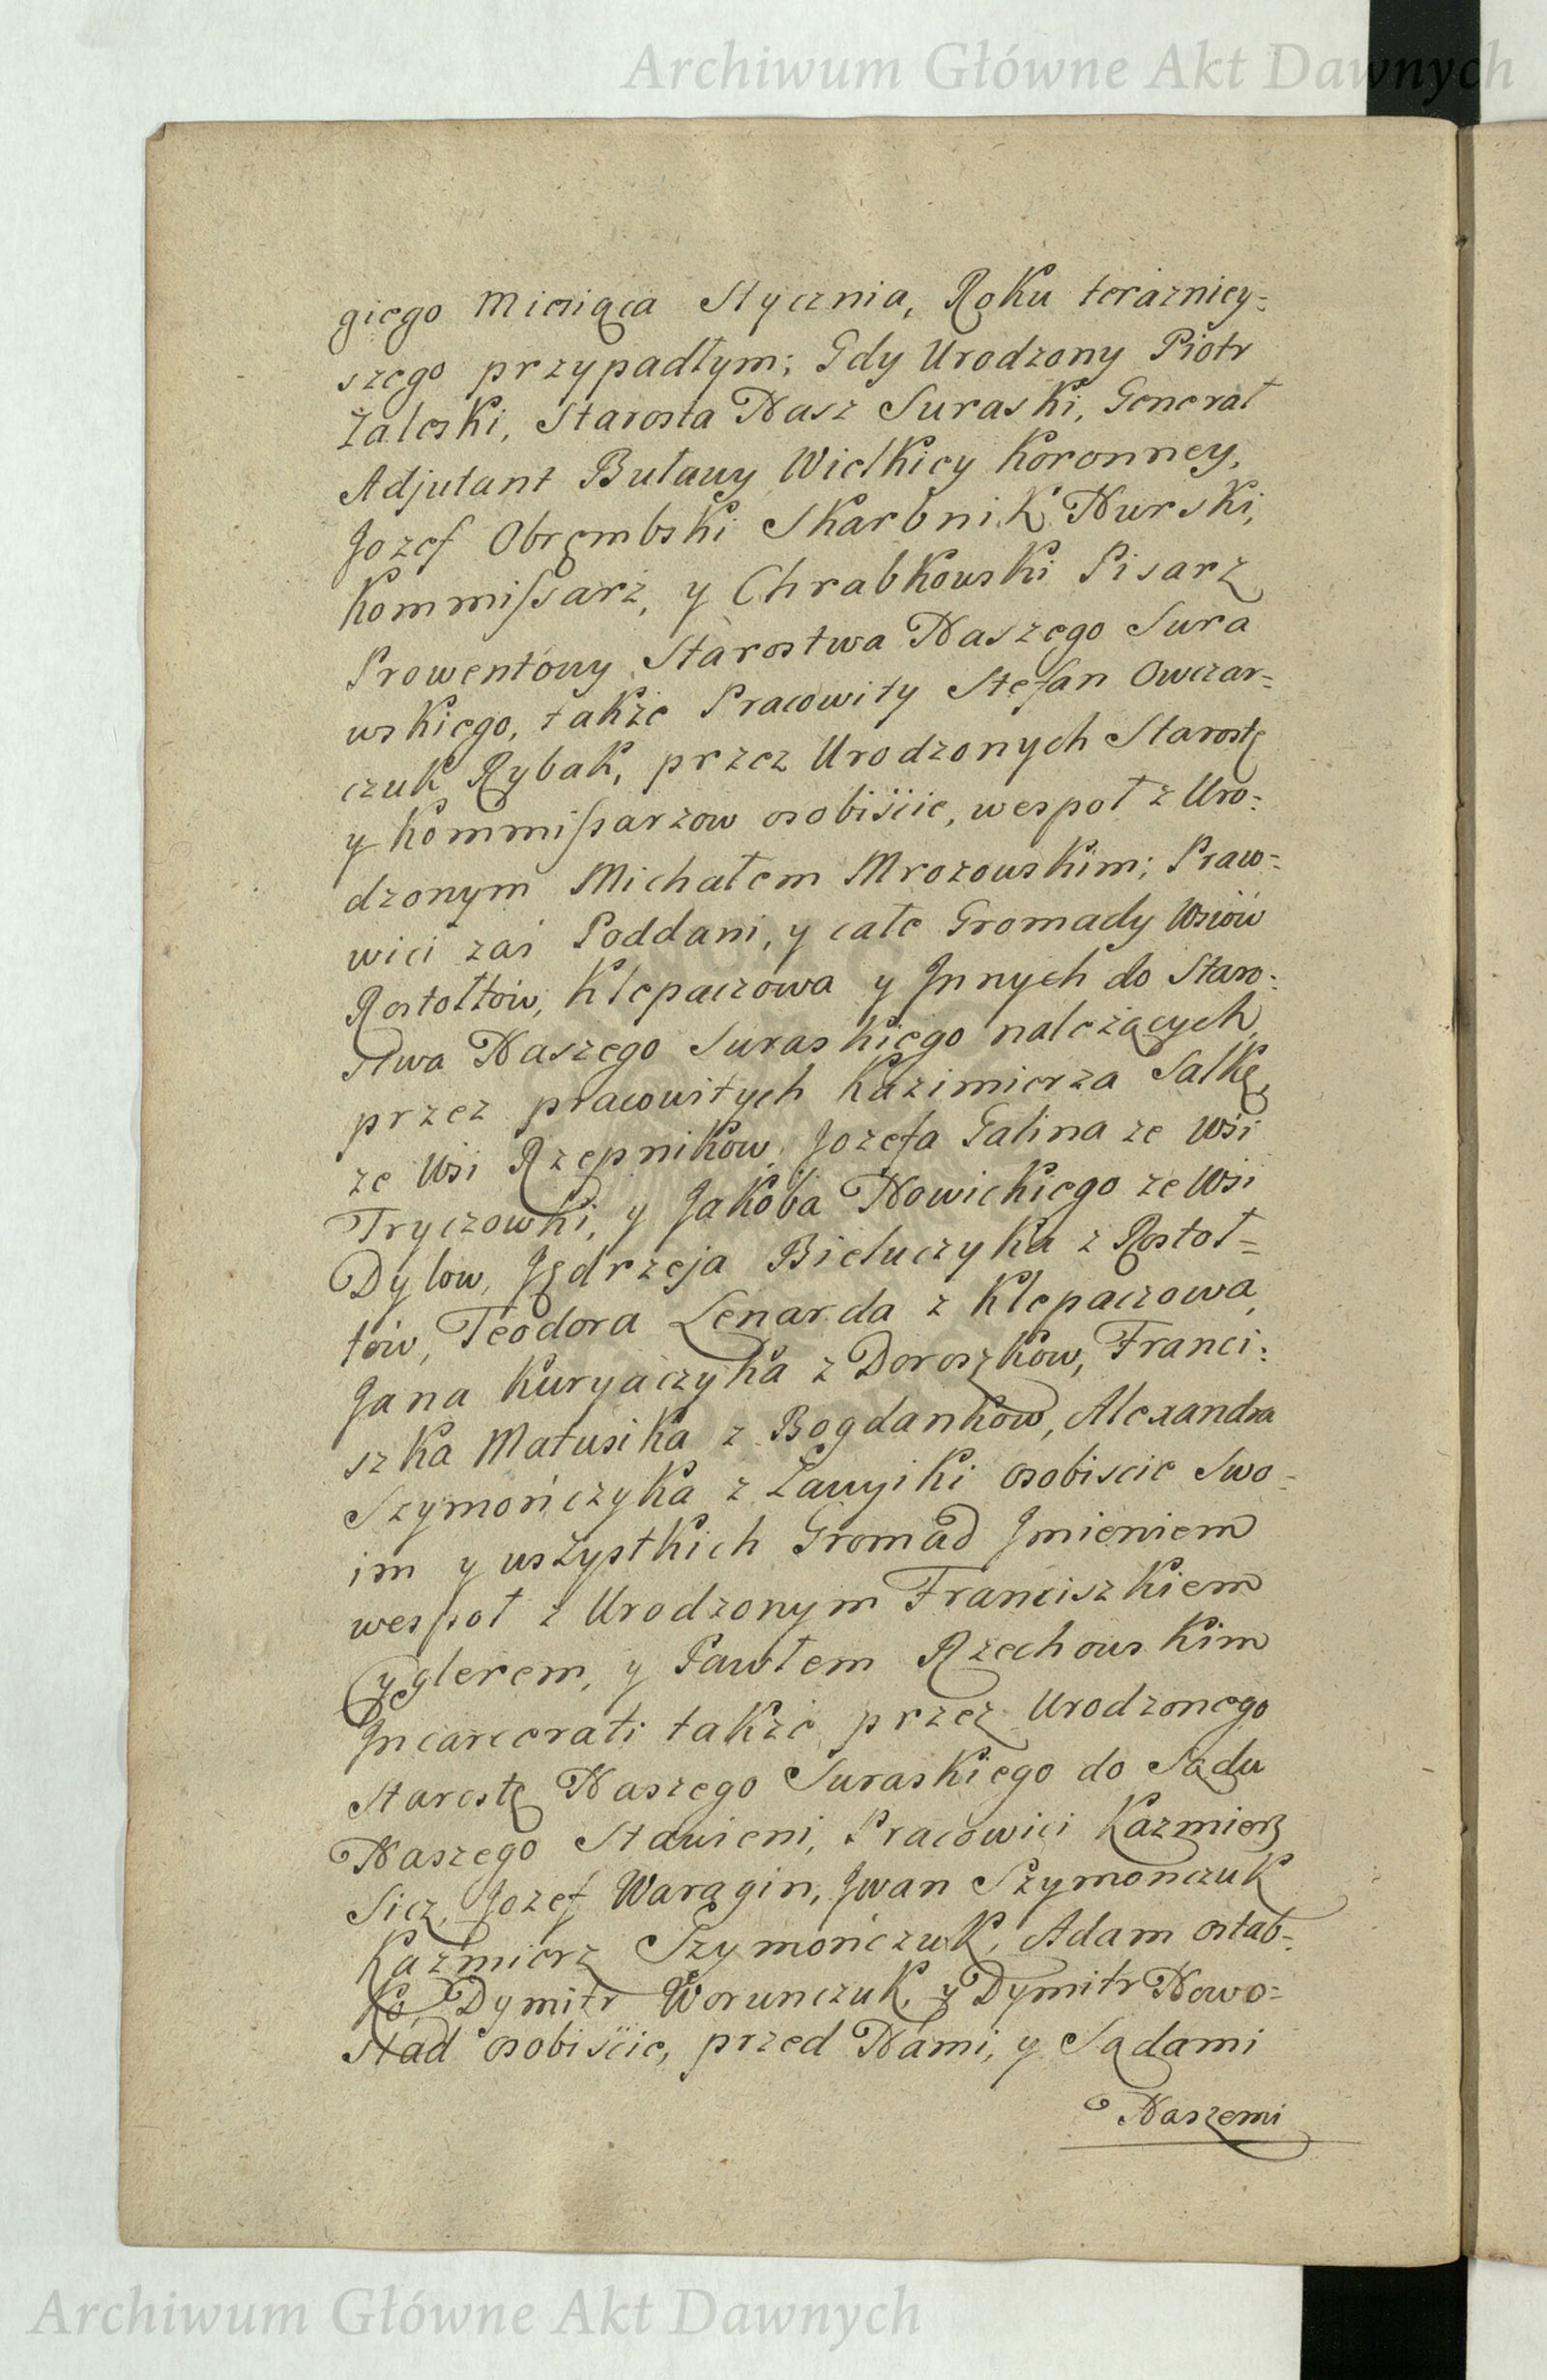 Archiwum Główne Akt Dawnych
giego Miesiąca Stycznia, Roku terazniey=
szego przypadłym; Gdy Urodzony Piotr
Zaleski, Starosta Nasz Suraski, Generał
Adjutant Buławy Wielkiey Koronney,
Jozef Obrembski Skarbnik Nurski,
Kommissarz, y Chrabkowski Pisarz
Prowentowy Starostwa Naszego Sura
wskiego, także Pracowity Stefan Owczar=
czuk Rybak, przez Urodzonych Starostę
y Kommissarzow osobiście, wespoł z Uro=
dzonym Michałem Mrozowskim; Praw=
wici zaś Poddani, y całe Gromady Wsiów
Rostołtów, Klepaczowa y Jnnych do Staro=
stwa Naszego Suraskiego należących,
przez pracowitych Kazimierza Salkę,
ze Wsi Rzepników, Jozefa Galina ze Wsi
Tryczowki, y Jakóba Nowickiego ze Wsi
Dylow, Jędrzeja Bieluczyka z Rostoł=
tów, Teodora Lenarda z Klepaczowa,
Jana Kuryaczyka z Doroszkow, Franci=
szka Matusika z Bogdankow, Alexandra
Szymończyka z Zawyiki osobiscie Swo=
im y wszystkich Gromad Jmieniem
wespoł z Urodzonym Franciszkiem
Cyglerem, y Pawłem Rzechowskim
Jncarcerati także przez Urodzonego
Starostę Naszego Suraskiego do Sądu
Naszego Stawieni, Pracowici Kazmierz
Sicz, Jozef Waragin, Jwan Szymonczuk
Kaźmierz Szymończuk, Adam Ostab=
ko Dymitr Worunczuk, y Dymitr Nowo=
stad osobiście, przed Nami, y Sądami
Naszemi
Archiwum Główne Akt Dawnych